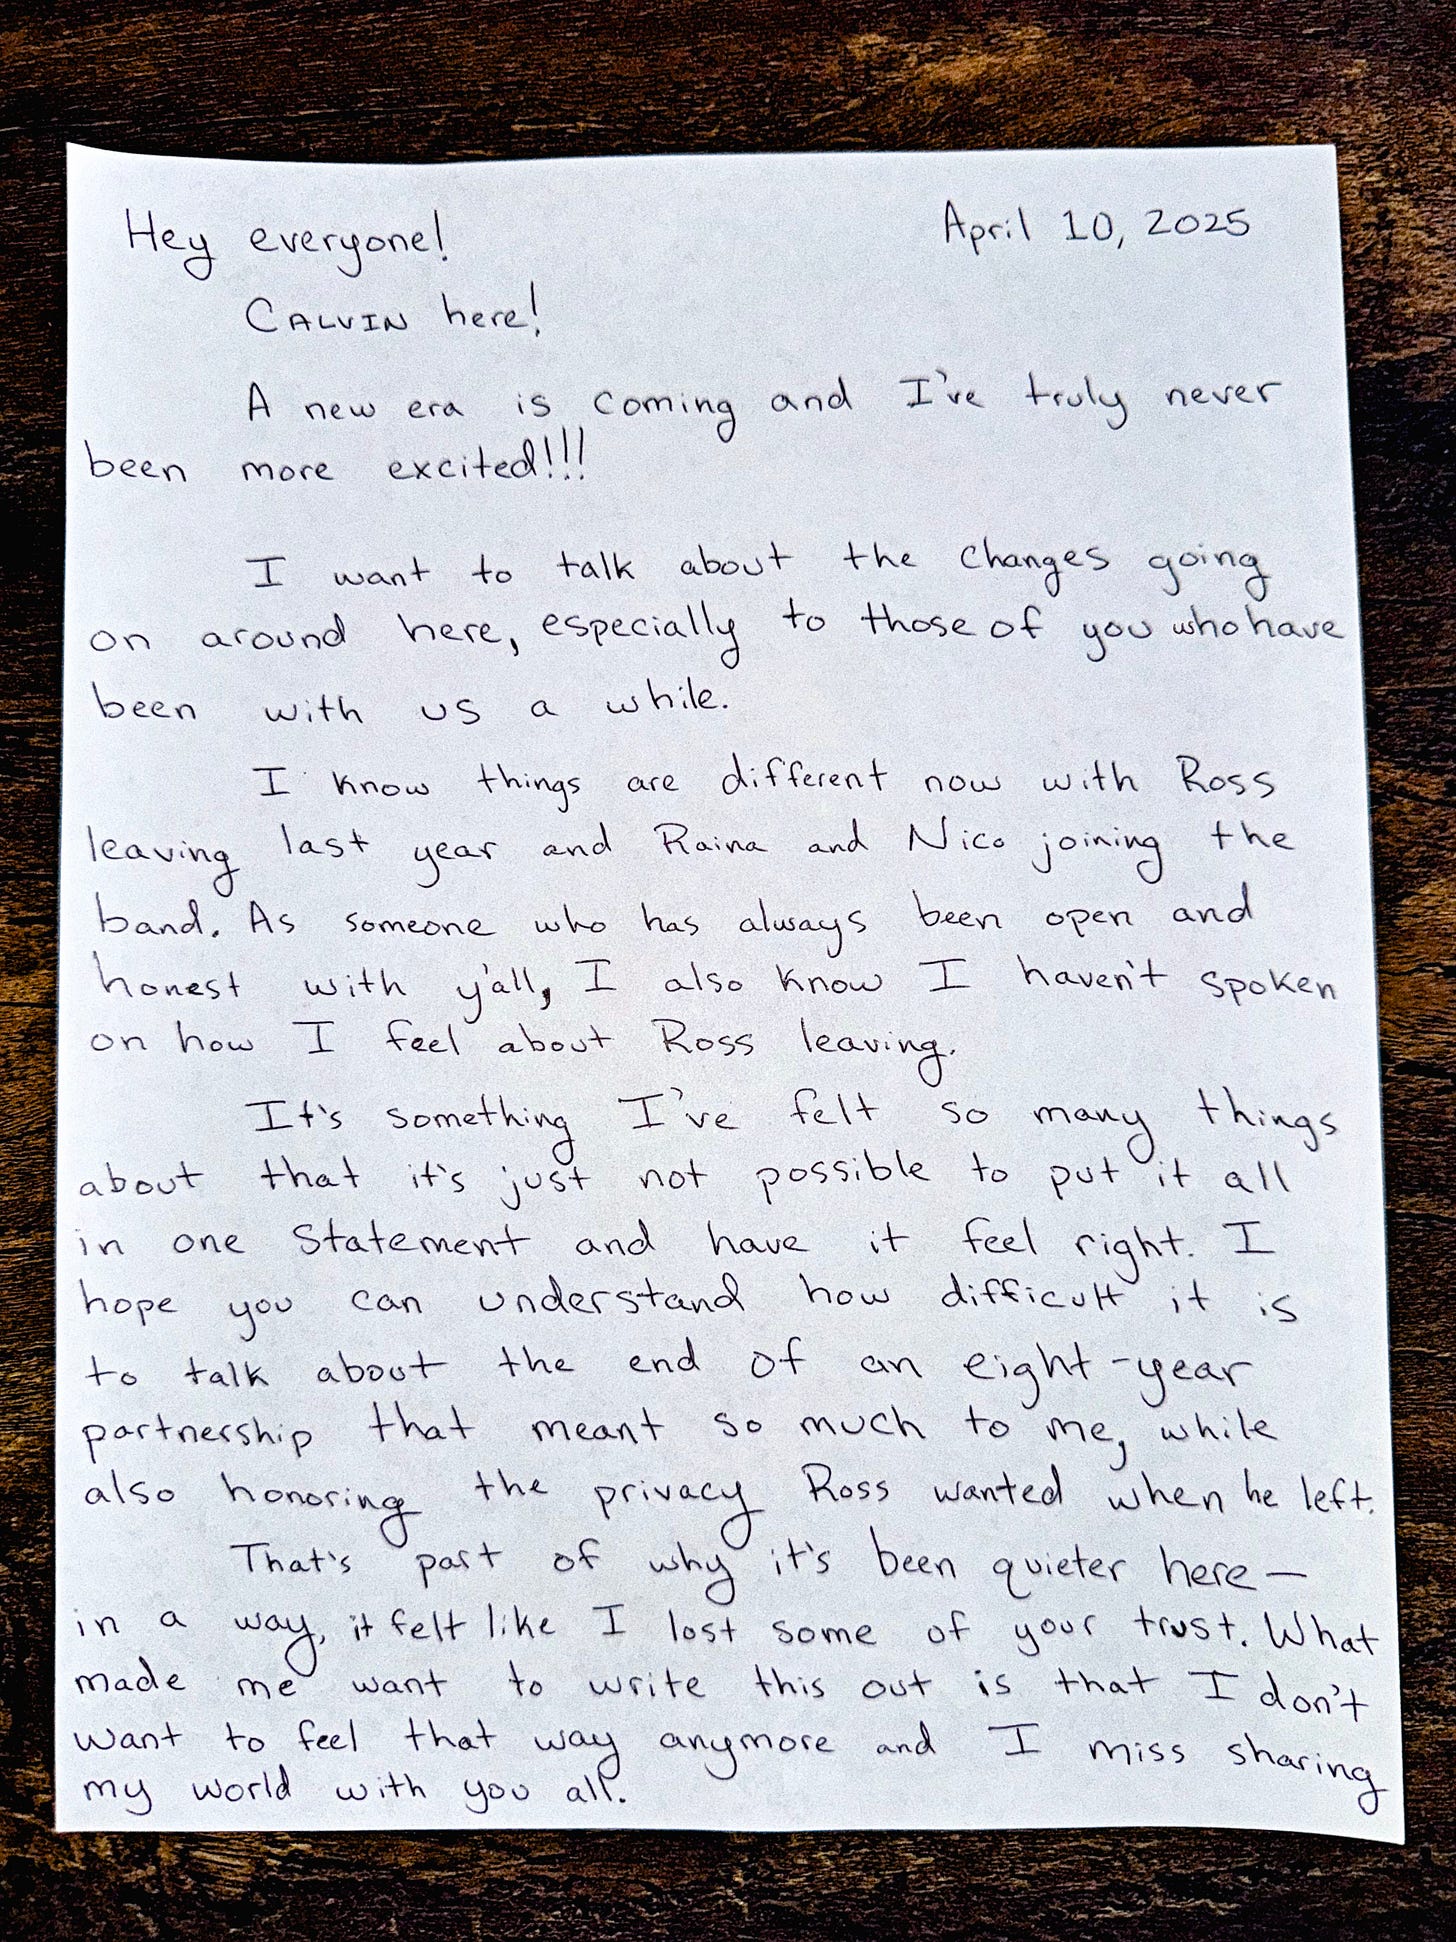 Hey everyone! April 10, 2025
CALVIN here!
A new era is coming and I've truly never
been more excited!!!
I want to talk about the changes going
on around here, especially to those of you who have
been with us a while.
I know things are different now with Ross
leaving last year and Raina and Nico joining the
band. As someone who has always been open and
honest with y'all, I also know I haven't spoken
on how I feel about Ross leaving.
It's something I've felt so many things
about that it's just not possible to put it all
in one statement and have it feel right. I
hope you can understand how difficult it is
to talk about the end of an eight-year
partnership that meant so much to me, while
also honoring the privacy Ross wanted when he left.
That's part of why it's been quieter here—
in a way, it felt like I lost some of your trust. What
made me want to write this out is that I don't
want to feel that way anymore and I miss sharing
my world with you all.